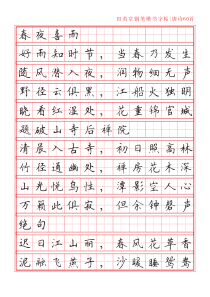 田英章钢笔楷书字帖:唐诗60首
春夜喜雨
好雨知时节，当春乃发生
随风潜入夜，润物细无声
野径云俱黑，江船火独明
晓看红湿处，花重锦官城
题破山寺后禅院
清晨入古寺，初日照高林
竹径通幽处，禅房花木深
山光悦鸟性，潭影空人心
万籁此俱寂，但余钟磬声
绝句
迟日江山丽，春风花草香
泥融飞燕子，沙暖睡鸳鸯